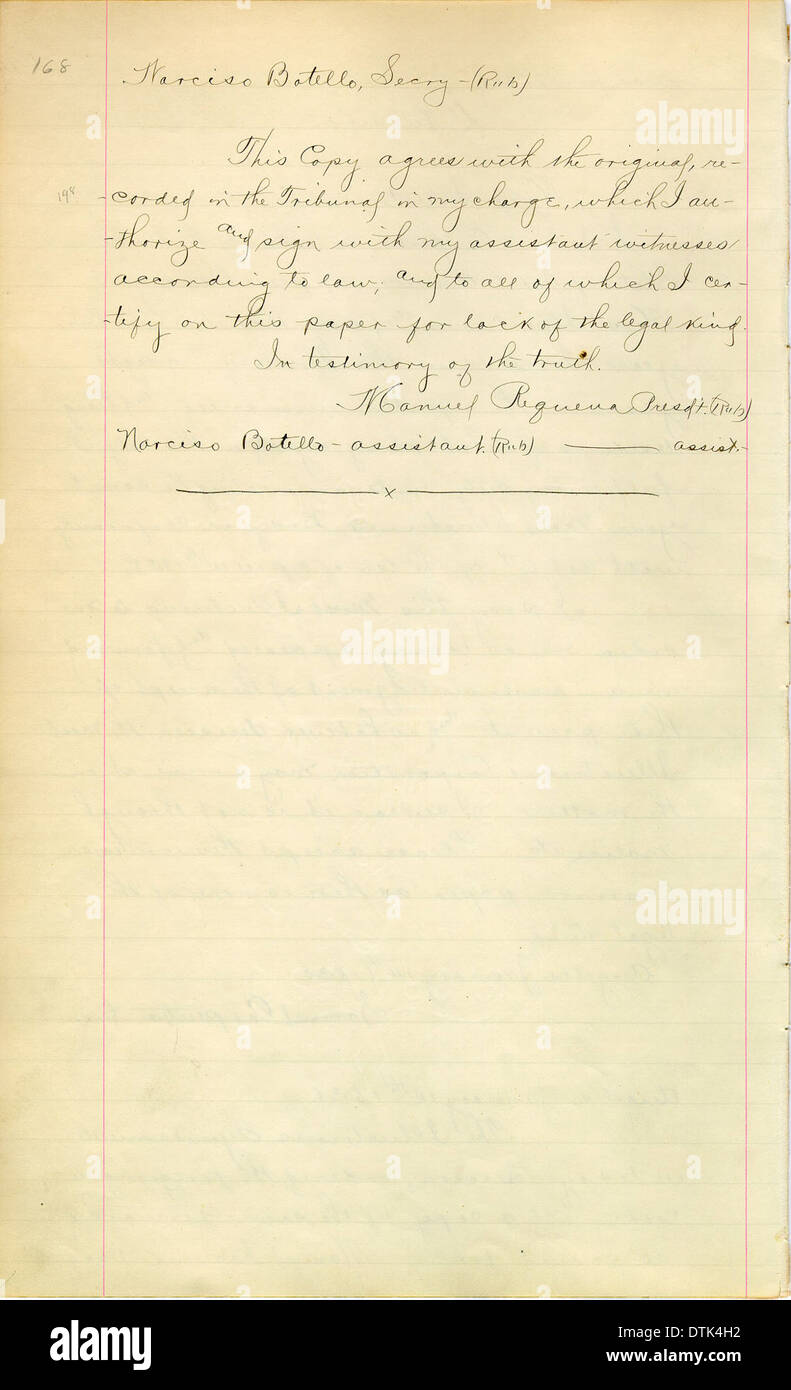 168
Narciso Botello, Secry - (Rub)
This Copy agrees with the original, re-
198
-corded in the Tribunal in my charge, which I au-
-thorize and sign with my assistant witnesses
according to law; and to all of which I cer-
-tify on this paper for lack of the legal kind.
In testimony of the truth.
Manuel Requena Presdt. (Rub)
Narciso Botello - assistant. (Rub) —— assist.-
x
alamy
alamy
alamy
alamy
Image ID: DTK4H2
www.alamy.com